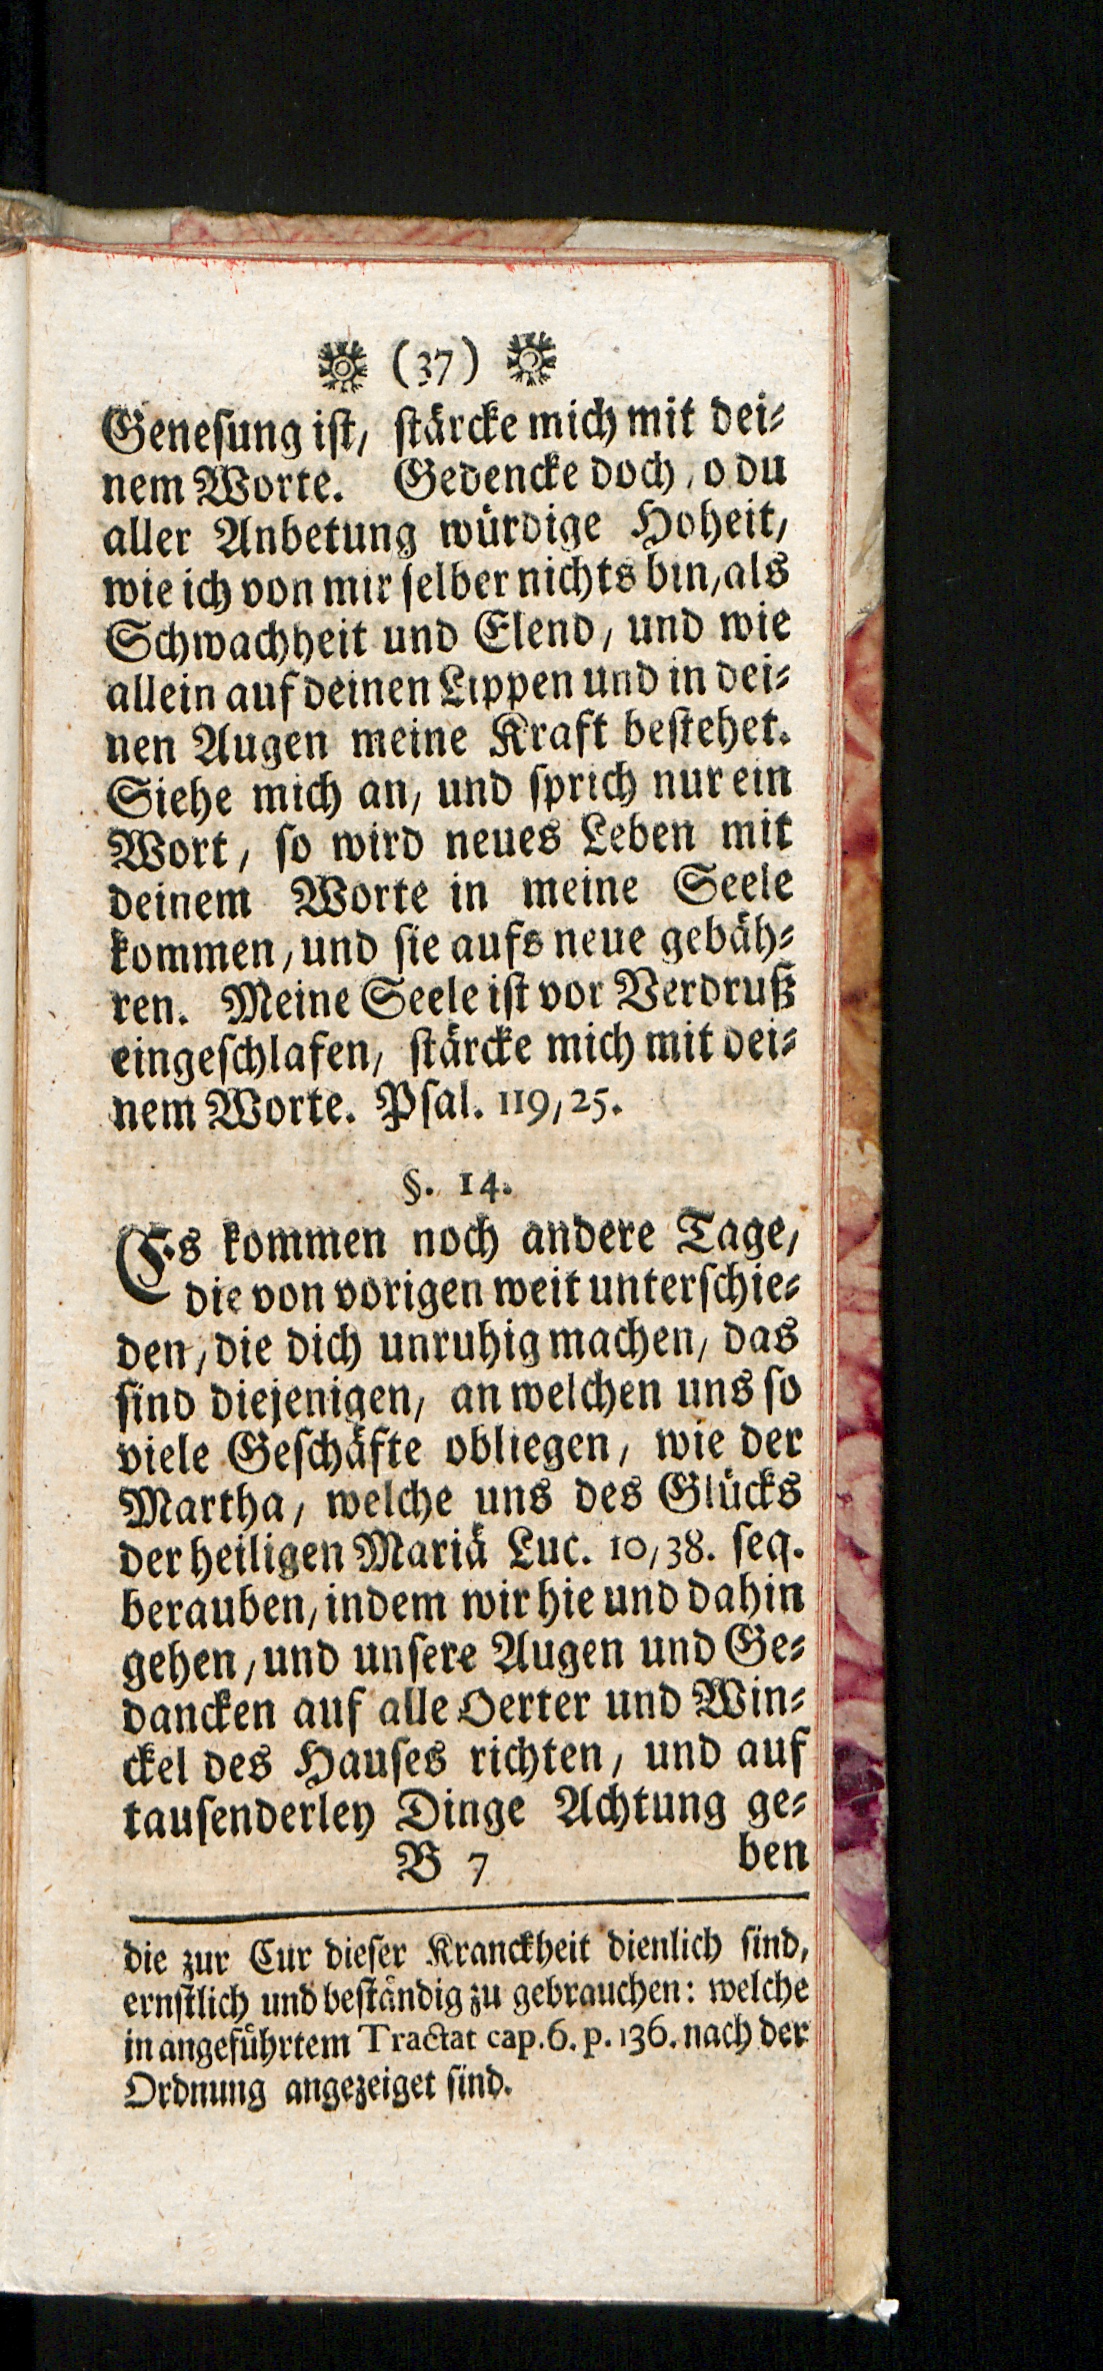 (37)
Geneſung iſt, ſtärcke mich mit dei-
nem Worte. Gedencke doch, o du
aller Anbetung würdige Hoheit,
wie ich von mir ſelber nichts bin, als
Schwachheit und Elend, und wie
allein auf deinen Lippen und in dei-
nen Augen meine Kraft beſtehet.
Siehe mich an, und ſprich nur ein
Wort, ſo wird neues Leben mit
deinem Worte in meine Seele
kommen, und ſie aufs neue gebäh-
ren. Meine Seele iſt vor Verdruß
eingeſchlafen, ſtärcke mich mit dei-
nem Worte. Pſal. 119, 25.
§. 14.
Es kommen noch andere Tage,
die von vorigen weit unterſchie-
den, die dich unruhig machen, das
ſind diejenigen, an welchen uns ſo
viele Geſchäfte obliegen, wie der
Martha, welche uns des Glücks
der heiligen Mariä Luc. 10, 38. ſeq.
berauben, indem wir hie und dahin
gehen, und unſere Augen und Ge-
dancken auf alle Oerter und Win-
ckel des Hauſes richten, und auf
tauſenderley Dinge Achtung ge-
B 7 ben
die zur Cur dieſer Kranckheit dienlich ſind,
ernſtlich und beſtändig zu gebrauchen: welche
in angeführtem Tractat cap. 6. p. 136. nach der
Ordnung angezeiget ſind.